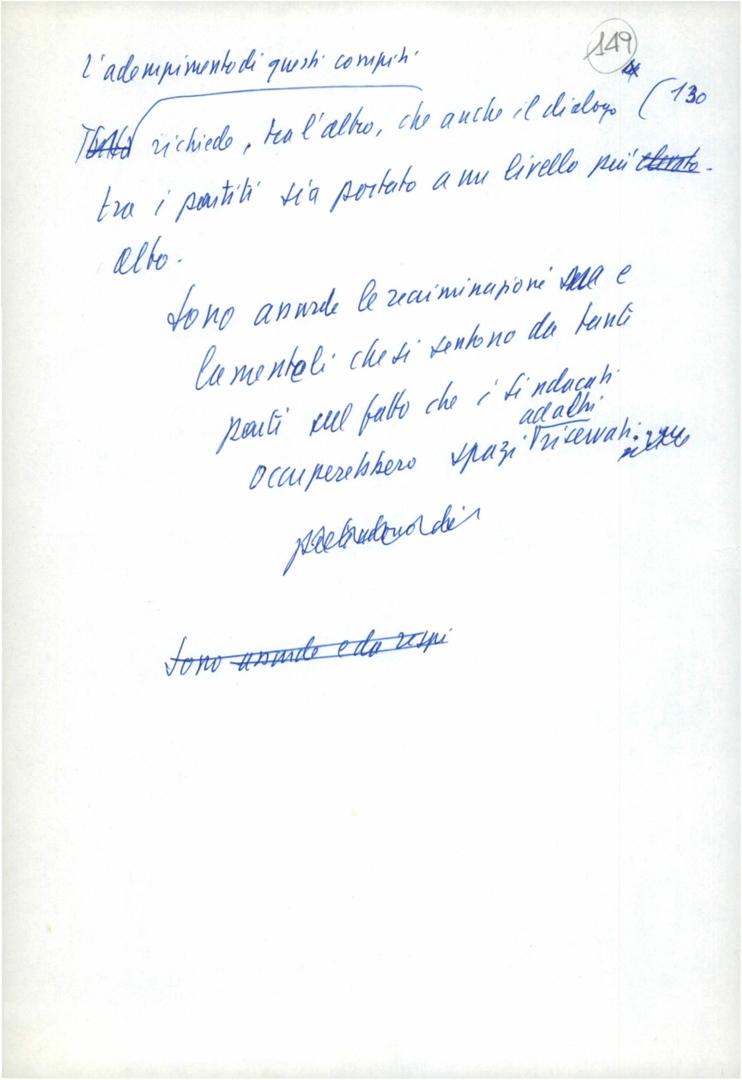 149
L'adempimento di questi compiti
richiede, tra l'altro, che anche il dialogo (130
tra i partiti sia portato a un livello più elevato.
alto.
Sono assurde le recriminazioni e
lamenteli che si sentono da tanti
parti sul fatto che i sindacati
ad altri
occuperebbero spazi riservati.
Sono assurde e da respi